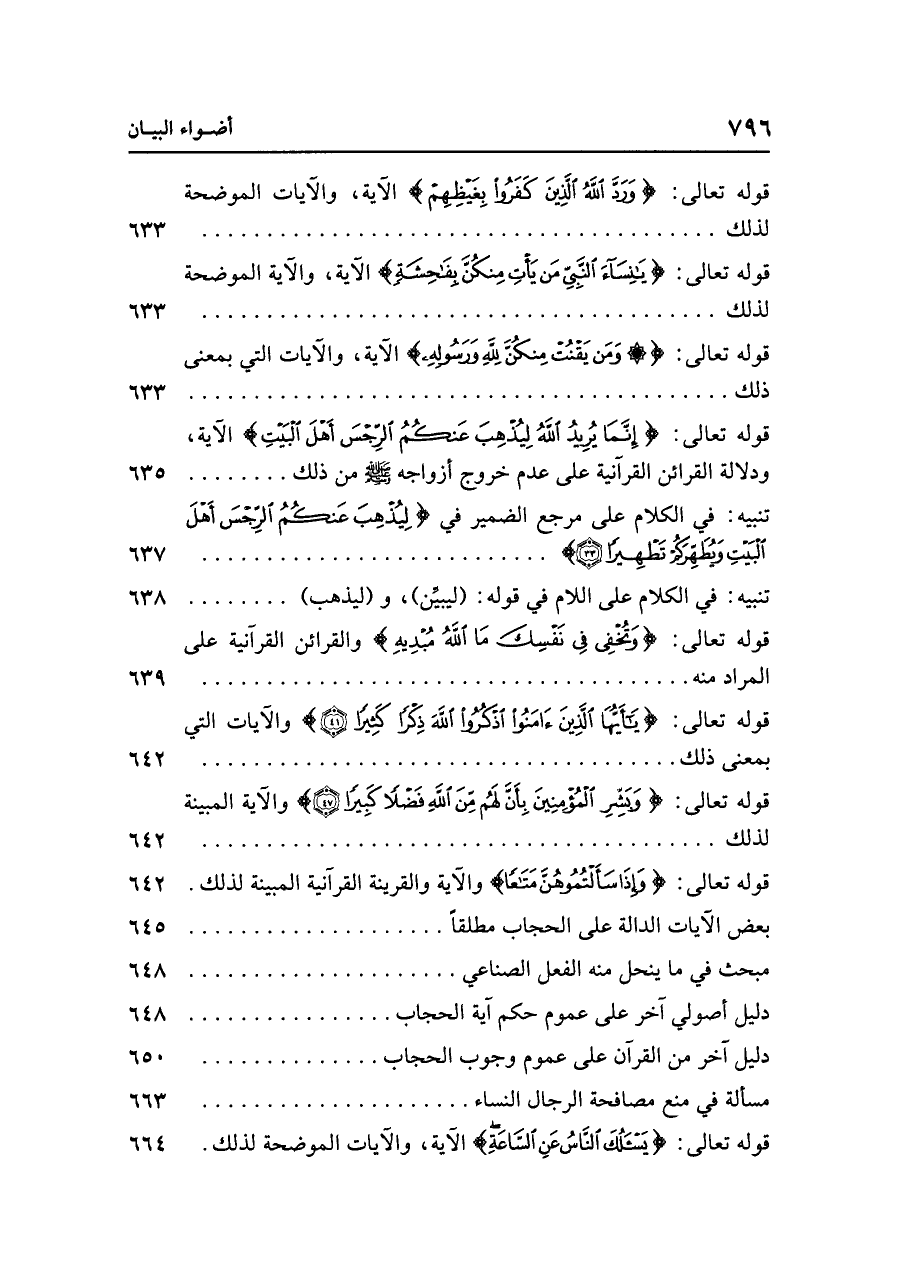 ٧٩٦ أضـواء البيـان
قوله تعالى: ﴿ وَرَدَّ ٱللَّهُ ٱلَّذِينَ كَفَرُوا۟ بِغَيْظِهِمْ ﴾ الآية، والآيات الموضحة
لذلك . . . . . . . . . . . . . . . . . . . . ٦٣٣
قوله تعالى: ﴿ يَٰنِسَآءَ ٱلنَّبِىِّ مَن يَأْتِ مِنكُنَّ بِفَٰحِشَةٍ ﴾ الآية، والآية الموضحة
لذلك . . . . . . . . . . . . . . . . . . . . ٦٣٣
قوله تعالى: ﴿ ۞ وَمَن يَقْنُتْ مِنكُنَّ لِلَّهِ وَرَسُولِهِۦ ﴾ الآية، والآيات التي بمعنى
ذلك . . . . . . . . . . . . . . . . . . . . ٦٣٣
قوله تعالى: ﴿ إِنَّمَا يُرِيدُ ٱللَّهُ لِيُذْهِبَ عَنكُمُ ٱلرِّجْسَ أَهْلَ ٱلْبَيْتِ ﴾ الآية،
ودلالة القرائن القرآنية على عدم خروج أزواجه ﷺ من ذلك . . . . . . . . ٦٣٥
تنبيه: في الكلام على مرجع الضمير في ﴿ لِيُذْهِبَ عَنكُمُ ٱلرِّجْسَ أَهْلَ
ٱلْبَيْتِ وَيُطَهِّرَكُمْ تَطْهِيرًا ٣٣ ﴾ . . . . . . . . . . . . . . . . . . . . ٦٣٧
تنبيه: في الكلام على اللام في قوله: (ليبيِّن)، و (ليذهب) . . . . . . . . ٦٣٨
قوله تعالى: ﴿ وَتُخْفِى فِى نَفْسِكَ مَا ٱللَّهُ مُبْدِيهِ ﴾ والقرائن القرآنية على
المراد منه . . . . . . . . . . . . . . . . . . . . ٦٣٩
قوله تعالى: ﴿ يَٰٓأَيُّهَا ٱلَّذِينَ ءَامَنُوا۟ ٱذْكُرُوا۟ ٱللَّهَ ذِكْرًا كَثِيرًا ٤١ ﴾ والآيات التي
بمعنى ذلك . . . . . . . . . . . . . . . . . . . . ٦٤٢
قوله تعالى: ﴿ وَبَشِّرِ ٱلْمُؤْمِنِينَ بِأَنَّ لَهُم مِّنَ ٱللَّهِ فَضْلًا كَبِيرًا ٤٧ ﴾ والآية المبينة
لذلك . . . . . . . . . . . . . . . . . . . . ٦٤٢
قوله تعالى: ﴿ وَإِذَا سَأَلْتُمُوهُنَّ مَتَٰعًا ﴾ والآية والقرينة القرآنية المبينة لذلك . ٦٤٢
بعض الآيات الدالة على الحجاب مطلقاً . . . . . . . . . . . . . . . . . . . . ٦٤٥
مبحث في ما ينحل منه الفعل الصناعي . . . . . . . . . . . . . . . . . . . ٦٤٨
دليل أصولي آخر على عموم حكم آية الحجاب . . . . . . . . . . . . . . . . ٦٤٨
دليل آخر من القرآن على عموم وجوب الحجاب . . . . . . . . . . . . . . ٦٥٠
مسألة في منع مصافحة الرجال النساء . . . . . . . . . . . . . . . . . . . . . ٦٦٣
قوله تعالى: ﴿ يَسْـَٔلُكَ ٱلنَّاسُ عَنِ ٱلسَّاعَةِۖ ﴾ الآية، والآيات الموضحة لذلك . ٦٦٤